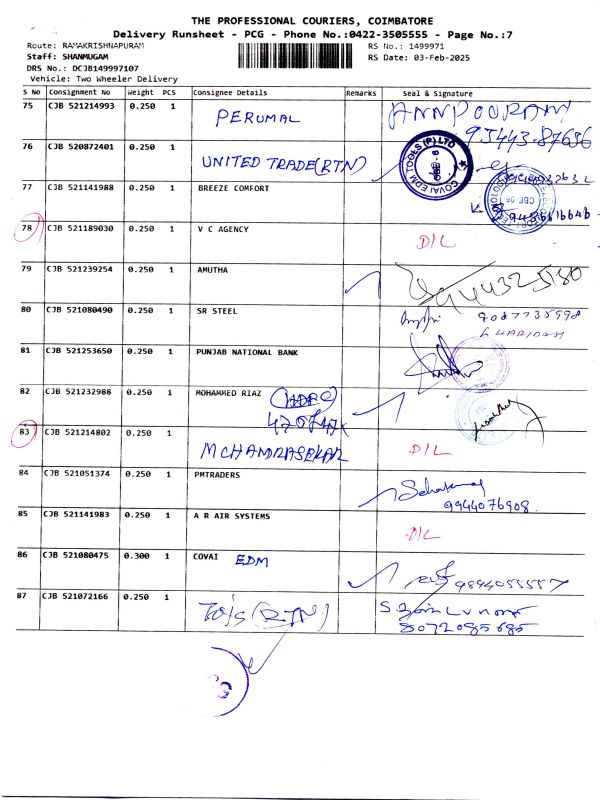 THE PROFESSIONAL COURIERS, COIMBATORE
Delivery Runsheet - PCG - Phone No.:0422-3505555 - Page No.:7
Route: RAMAKRISHNAPURAM RS No.: 1499971
Staff: SHANMUGAM RS Date: 03-Feb-2025
DRS No.: DCJB149997107
Vehicle: Two Wheeler Delivery
S No Consignment No Weight PCS Consignee Details Remarks Seal & Signature
75 CJB 521214993 0.250 1 PERUMAL ANNPOORANI
95443-87656
76 CJB 520872401 0.250 1 UNITED TRADE(RTN) COVAI EDM TOOLS (P) LTD
77 CJB 521141988 0.250 1 BREEZE COMFORT
78 CJB 521189030 0.250 1 V C AGENCY D/L
79 CJB 521239254 0.250 1 AMUTHA 9444325180
80 CJB 521080490 0.250 1 SR STEEL 9087735998
81 CJB 521253650 0.250 1 PUNJAB NATIONAL BANK
82 CJB 521232988 0.250 1 MOHAMMED RIAZ
83 CJB 521214802 0.250 1 MCHANDRASEKAR D/L
84 CJB 521051374 0.250 1 PMTRADERS
9944076908
85 CJB 521141983 0.250 1 A R AIR SYSTEMS D/L
86 CJB 521080475 0.300 1 COVAI EDM 9894055557
87 CJB 521072166 0.250 1 (RTN)
8072085685